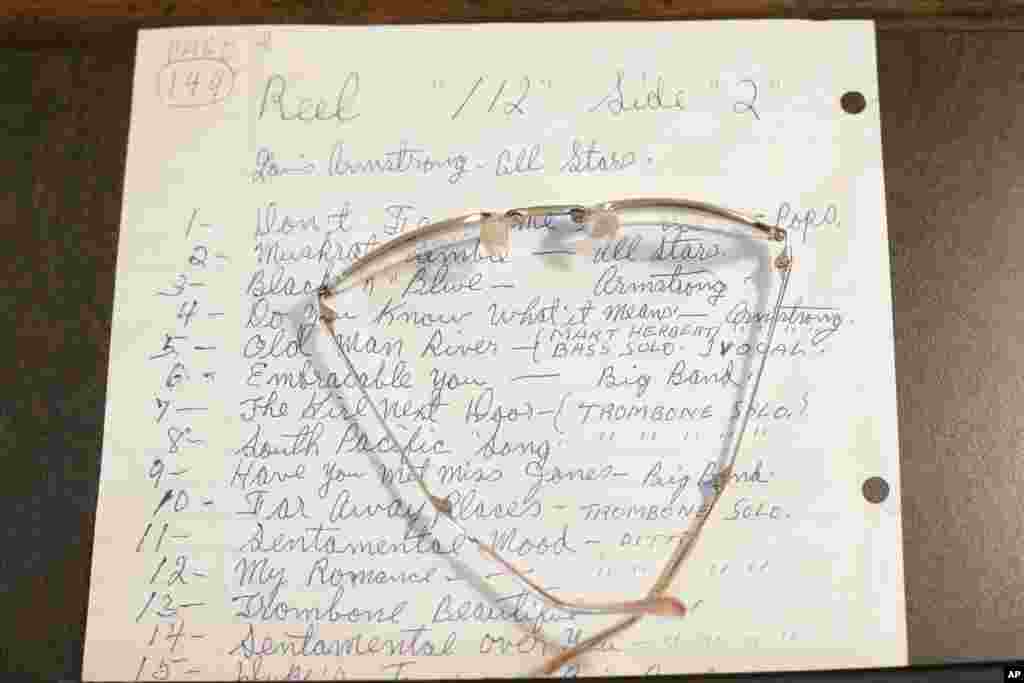 PAGE
149
Reel "112" Side "2"
Louis Armstrong - All Stars.
1- Don't - Pops.
2- Muskrat - All Stars.
3- Black " " Blue - Armstrong
4- Do You Know What it Means - Armstrong.
5- Old Man River - (MART HERBERT) " " " "
BASS SOLO. VOCAL.
6- Embraceable You - Big Band.
7- The Girl Next Door - (TROMBONE SOLO.)
8- South Pacific Song " " " " "
9- Have You Met Miss Jones - Big Band.
10- Far Away Places - TROMBONE SOLO.
11- Sentamental Mood - DITTO
12- My Romance - - " " " "
13- Trombone
14- Sentamental over
15-
AP